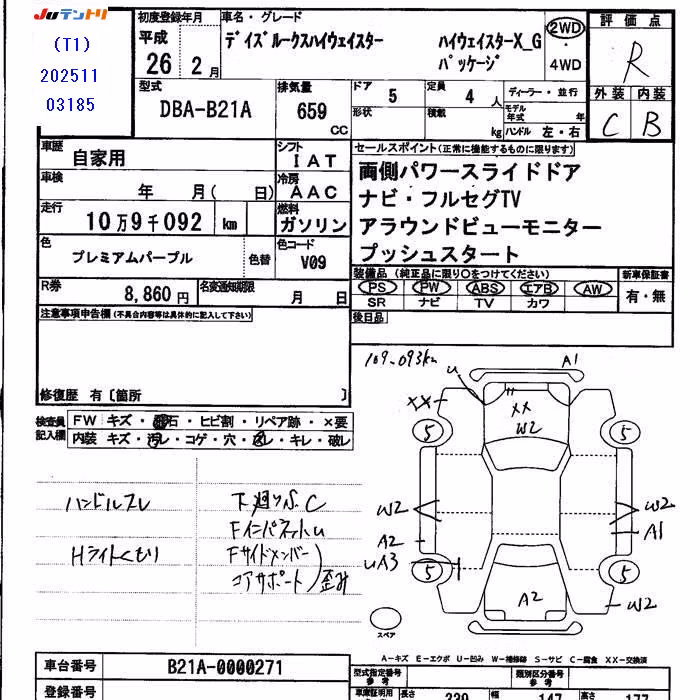 JUテントリ
(T1)
202511
03185
初度登録年月
平成
26 2 月
車名・グレード
デイズルークスハイウェイスター ハイウェイスターX_G
パッケージ
2WD
・
4WD
評価点
R
外装 内装
C B
型式
DBA-B21A
排気量
659
CC
ドア 5
定員 4 人
形状
積載 kg
ディーラー・並行
モデル年式 年
ハンドル 左・右
車歴
自家用
シフト
I A T
車検
年 月( 日)
冷房
A A C
走行
10万9千092 km
燃料
ガソリン
色
プレミアムパープル
色替
色コード
V09
R券
8,860 円
名変通知期限
月 日
セールスポイント(正常に機能するものに限ります)
両側パワースライドドア
ナビ・フルセグTV
アラウンドビューモニター
プッシュスタート
装備品 (純正品に限り○をつけてください)
新車保証書
PS PW ABS エアB AW
SR ナビ TV カワ
有・無
後日品
注意事項申告欄(不具合内容等は具体的に記入して下さい)
修復歴 有〔箇所 〕
検査員
記入欄
FW キズ・飛石・ヒビ割・リペア跡・×要
内装 キズ・汚レ・コゲ・穴・スレ・キレ・破レ
ハンドルスレ
Hライトくもり
下廻りS.C
FインパネットU
Fサイドメンバー
コアサポート 歪み
109.093km
A1
U
XX
XX
W2
5
5
W2
W2
A2
A1
UA3
5
5
A2
W2
スペア
A-キズ E-エクボ U-凹み W-補修跡 S-サビ C-腐食 XX-交換済
車台番号
B21A-0000271
登録番号
型式指定番号
参考
類別区分番号
参考
車庫証明用
長さ 339 幅 147 高さ 177